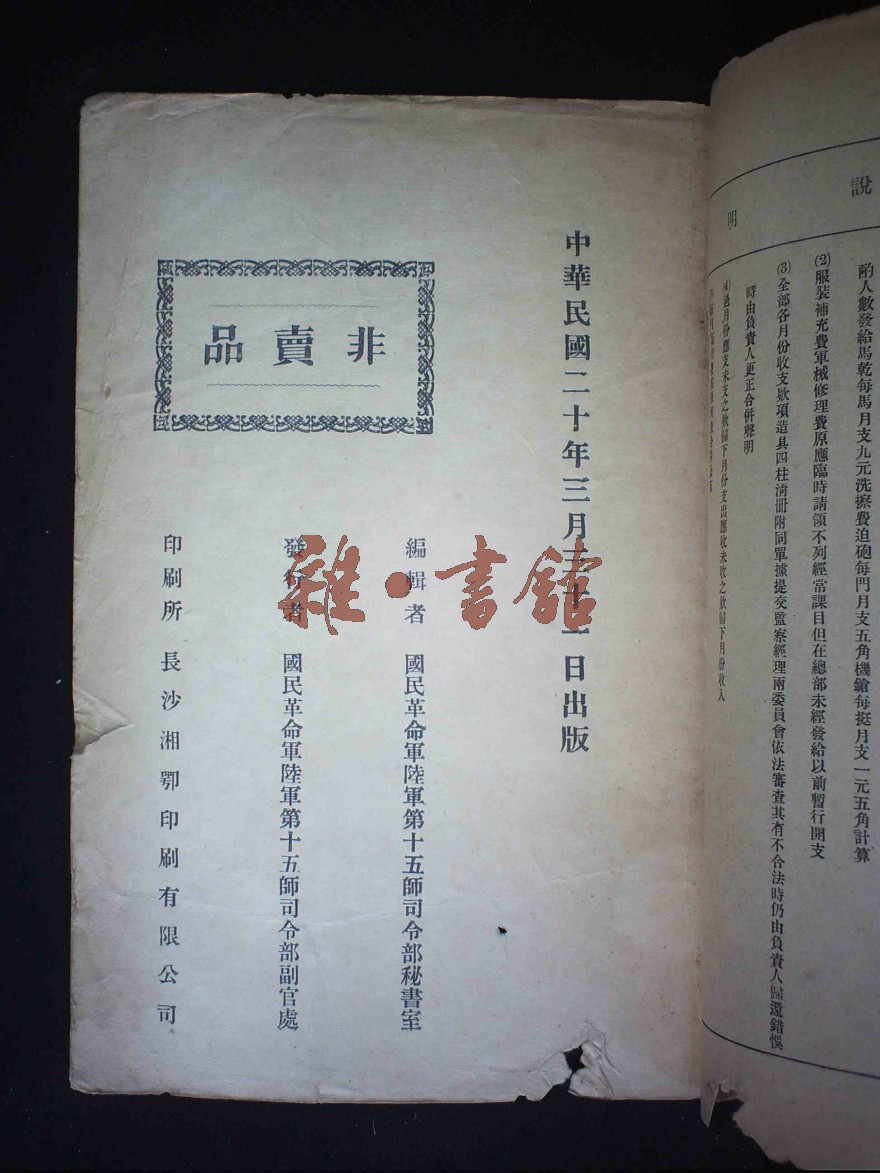 說明
酌人數發給馬乾每馬月支九元洗擦費迫砲每門月支五角機鎗每挺月支一元五角計算
(2)服裝補充費軍械修理費原應臨時請領不列經常課目但在總部未經發給以前暫行開支
(3)全部各月份收支欵項造具四柱清冊附同單據提交監察經理兩委員會依法審查其有不合法時仍由負責人歸還錯悞
時由負責人更正合併聲明
(4)過月份應支未支之欵歸下月份支出應收未收之欵歸下月份收入
中華民國二十年三月三十一日出版
非賣品
編輯者 國民革命軍陸軍第十五師司令部秘書室
發行者 國民革命軍陸軍第十五師司令部副官處
印刷所 長沙湘鄂印刷有限公司
雜·書館